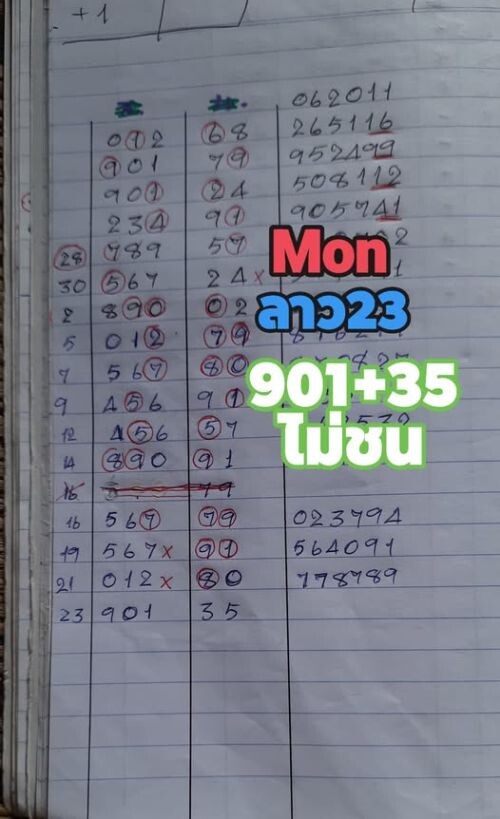 +1
062011
012 68 265116
901 79 952499
901 24 508112
234 91 905741
28 789 57
30 567 24x
2 890 02
5 012 79
7 567 80
9 456 91
12 456 57
14 890 91
16 79
16 567 79 023794
19 567x 91 564091
21 012x 80 778789
23 901 35
Mon
ลาว23
901+35
ไม่ชน